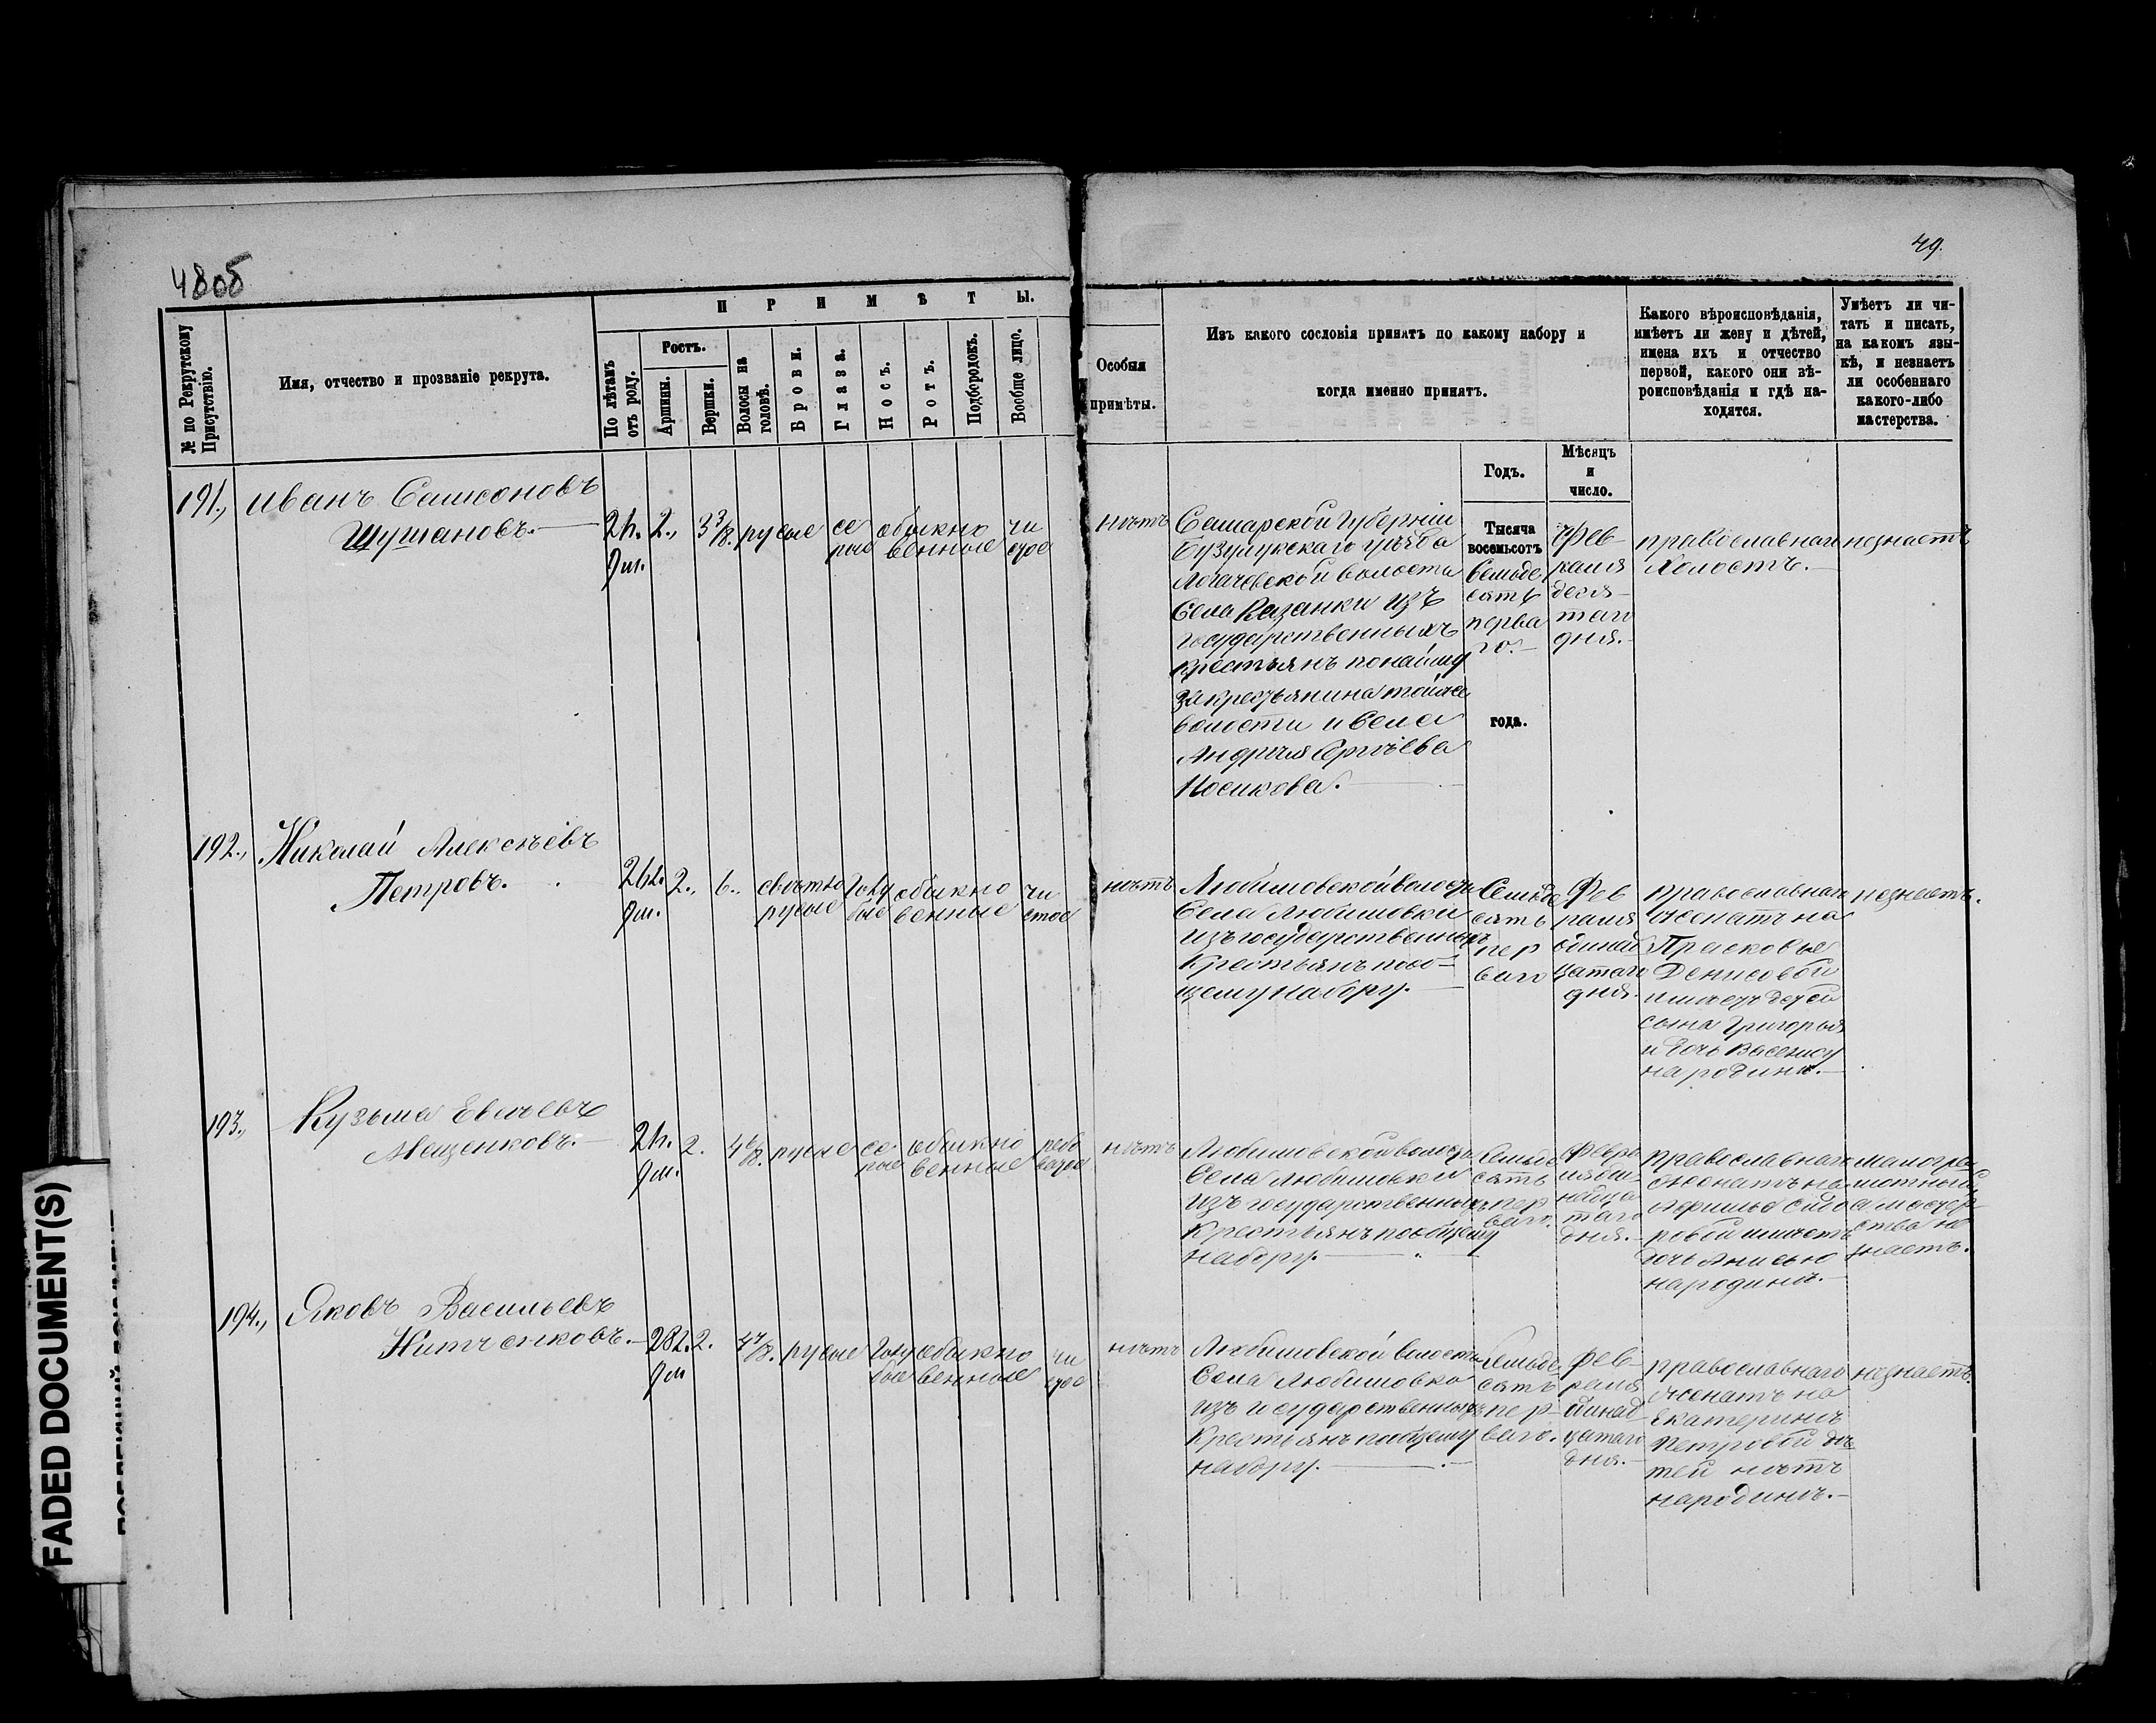 48об
49.
№ по Рекрутскому Присутствію.
Имя, отчество и прозваніе рекрута.
ПРИМѢТЫ.
По лѣтамъ отъ роду.
Ростъ.
Аршины.
Вершки.
Волосы на головѣ.
Брови.
Глаза.
Носъ.
Ротъ.
Подбородокъ.
Вообще лицо.
Особыя
примѣты.
Изъ какого сословія принятъ по какому набору и
когда именно принятъ.
Годъ.
Мѣсяцъ
и
число.
Какого вѣроисповѣданія,
имѣетъ ли жену и дѣтей,
имена ихъ и отчество
первой, какого они вѣ-
роисповѣданія и гдѣ на-
ходятся.
Умѣетъ ли чи-
тать и писать,
на какомъ язы-
кѣ, и незнаетъ
ли особеннаго
какого-либо
мастерства.
191.,
Иванъ Самсоновъ
Шушановъ.
2., 3 3/8. русые
се
рые
обыкно
венные
чи
стое
нѣтъ
Самарской Губерніи
Бузулукскаго уѣзда
Логачевской волости
Села Казанки изъ
государственныхъ
крестьянъ понайму
закрестьянина тойже
волости и Села
Андрея Сергѣева
Носикова.
Тысяча
восемьсотъ
Семьде
сятъ
перва
го.
года.
Фев-
раля
деся-
таго
дня.
православнаго
Холостъ.
незнаетъ
192.,
Николай Алексѣевъ
Петровъ.
2., 6..
свѣтло
русые
Голу
бые
обыкно
венные
чи
стое
нѣтъ
Любимовской волости
Села Любимовки
изъ государственныхъ
крестьянъ пооб-
щему набору.
Семьде
сятъ
пер
ваго
Фев
раля
одинад
цатаго
дня.
православнаго
женатъ на
Прасковье
Денисовой
имѣетъ детей
сына Григорья
и дочь Васелису
на родинѣ.
незнаетъ.
193.,
Кузьма Евсѣевъ
Мещенковъ.
2. 4 6/8. русые
се
рые
обыкно
венные
рябо
ватое
нѣтъ
Любимовской волости
Села Любимовки
изъ государственныхъ
крестьянъ пообщему
набору.
Семьде
сятъ
пер
ваго.
Февра
ля оди
надца
таго
дня.
православнаго
женатъ на
Офимье Сидо
ровой имѣетъ
дочь Анисью
народинѣ.
малогра-
мотный
а мастер-
ства не
знаетъ.
194.,
Яковъ Васильевъ
Нитченковъ.
2. 4 4/8. русые
Голу
бые
обыкно
венные
чи
стое
нѣтъ
Любимовской волости
Села Любимовка
изъ государственныхъ
крестьянъ пообщему
набору.
Семьде
сятъ
пер
ваго.
Фев-
раля
одинад
цатаго
дня.
православнаго
женатъ на
Екатеринѣ
Петровой дѣ
тей нѣтъ
народинѣ.
незнаетъ.
FADED DOCUMENT(S)